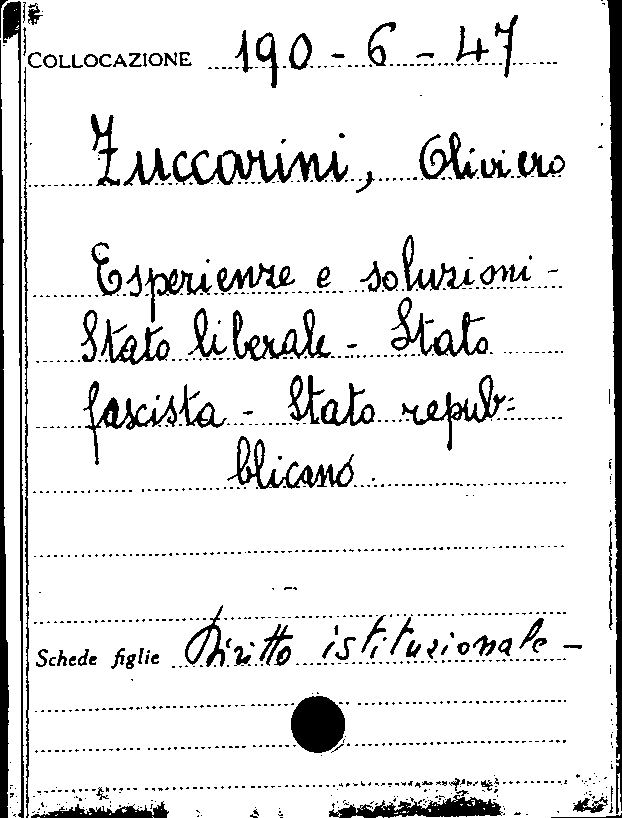 COLLOCAZIONE 190 - 6 - 47
Zuccarini, Oliviero
Esperienze e soluzioni -
Stato liberale - Stato
fascista - Stato repub=
blicano.
Schede figlie Diritto istituzionale -